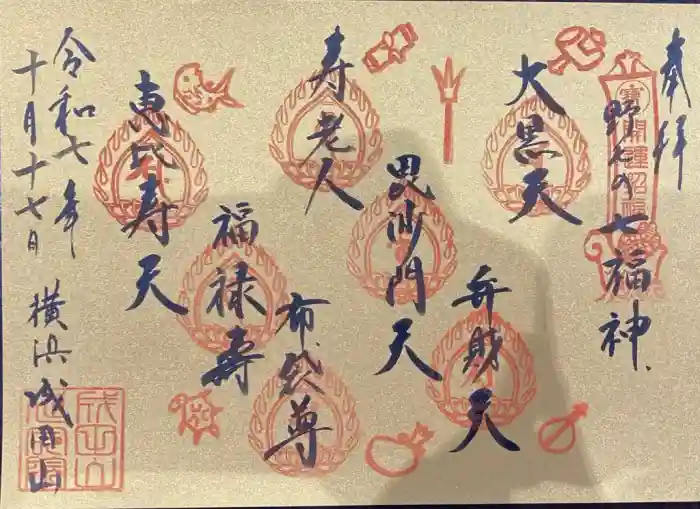 奉拝
野毛の七福神
開運招福
大黒天
弁財天
毘沙門天
寿老人
布袋尊
福禄壽
恵比寿天
令和七年
十月十七日
横浜成田山